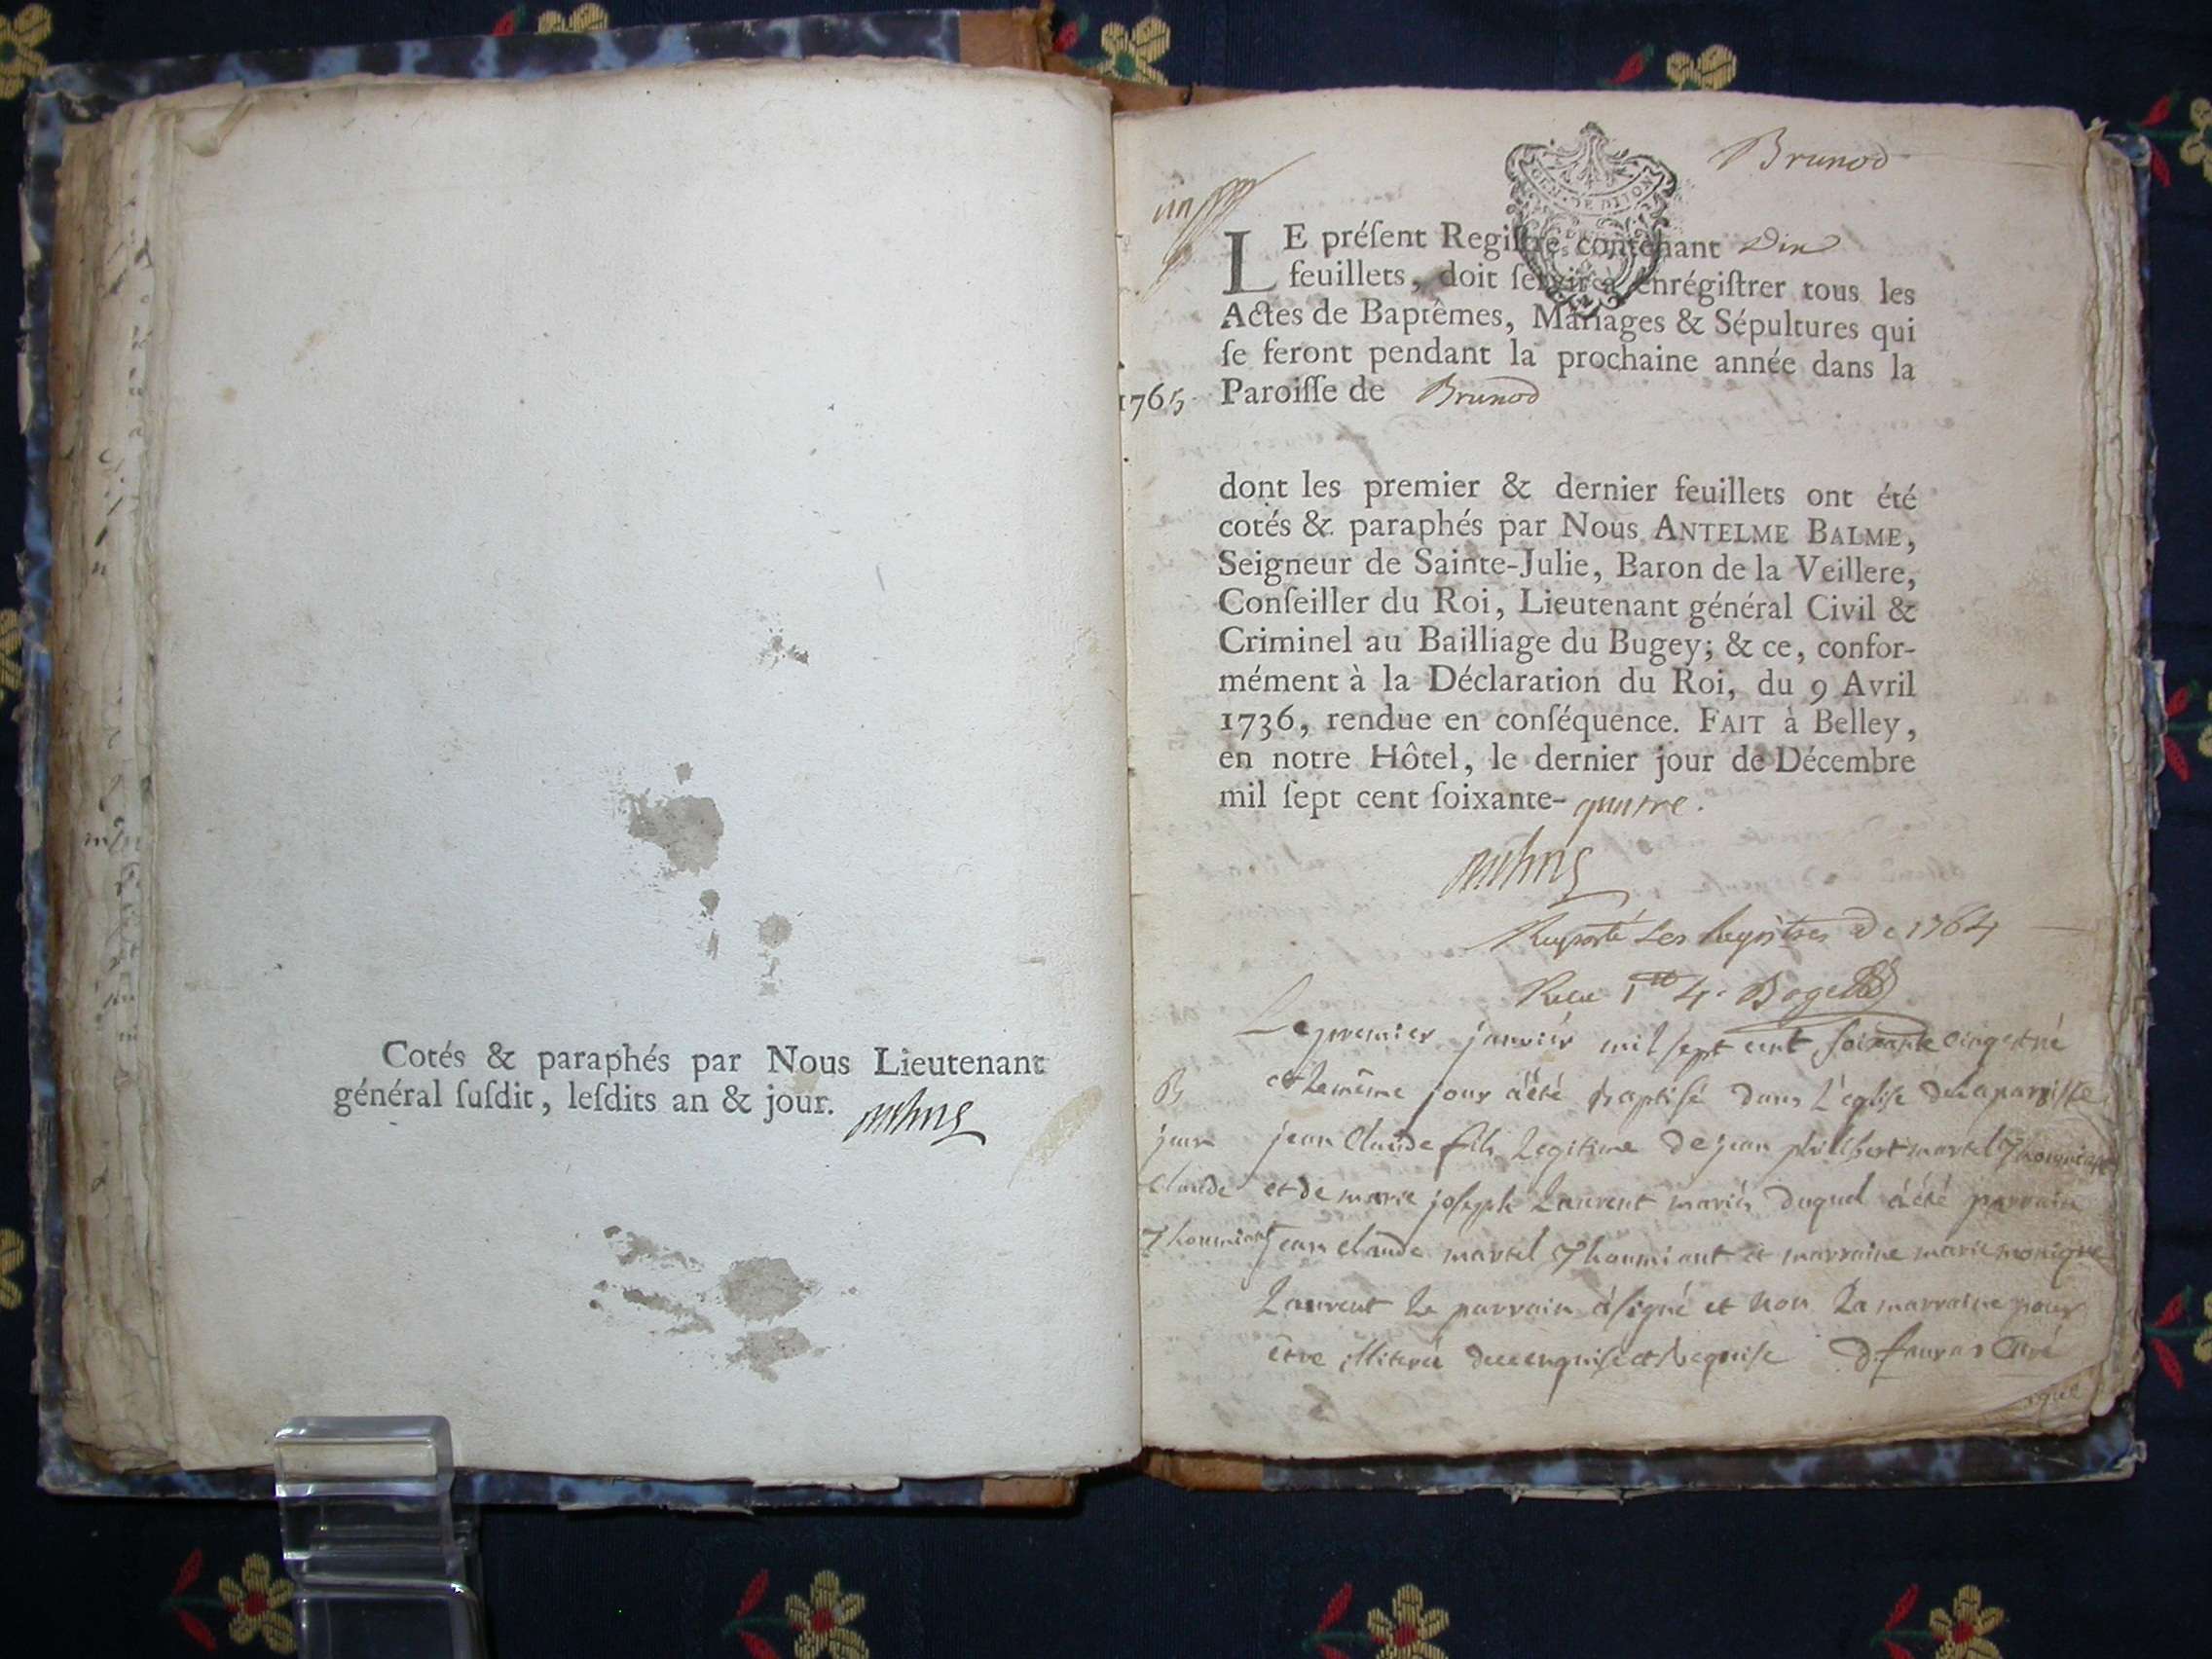 Cotés & paraphés par Nous Lieutenant
général ſuſdit, leſdits an & jour.
Brunod
un
GEN. DE DIJON
LE préſent Regiſtre contenant Dix
feuillets, doit ſervir à enrégiſtrer tous les
Actes de Baptêmes, Mariages & Sépultures qui
ſe feront pendant la prochaine année dans la
1765 Paroiſſe de Brunod
dont les premier & dernier feuillets ont été
cotés & paraphés par Nous ANTELME BALME,
Seigneur de Sainte-Julie, Baron de la Veillere,
Conſeiller du Roi, Lieutenant général Civil &
Criminel au Bailliage du Bugey; & ce, confor-
mément à la Déclaration du Roi, du 9 Avril
1736, rendue en conſéquence. FAIT à Belley,
en notre Hôtel, le dernier jour de Décembre
mil ſept cent ſoixante-quatre.
Raporté Les Regitres De 1764
Le premier janvier mil sept cent soixante cinq est né
et le même jour a été baptisé dans l'eglise de la paroisse
B
jean
Claude
Thoumiant
jean Claude fils Legitime de jean philibert martel Thoumiant
et de marie joseph Laurent mariés duquel a été parrain
jean claude martel Thoumiant et marraine marie monique
Laurent Le parrain a signé et non La marraine pour
être illiterée de ce enquise et requise D. fauras Curé